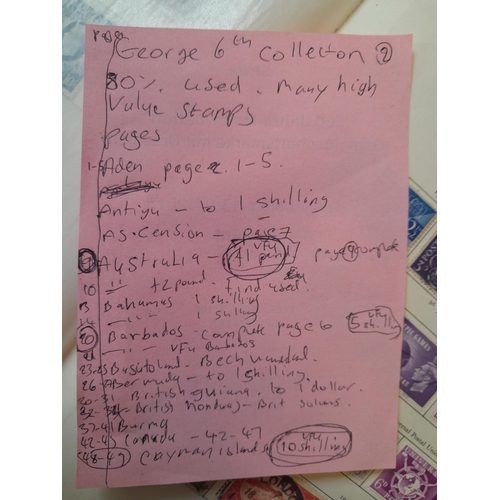 Pages
George 6th Collecton 2
80% used. Many high
Value stamps
pages
1-5 Aden page 1-5.
Antigu - to 1 shilling
AS.cension - page 7
Australia - VFU £1 pound page 9 complete
10 " £2 pound - find used.
Bahamas 1 shilling
" 1 shilling
20 Barbados - complete page to VFU 5 shilli
21 " VFU Barbados
23-25 Basutoland. Bechuanaland.
26- Bermuda - to 1 shilling.
30-31 British guiana. to 1 dollar.
32- British Honduras - Brit Solomns.
37-41 Burma
42-47 Canada - 42-47
48-49 Cayman islands VFU 10 shilling